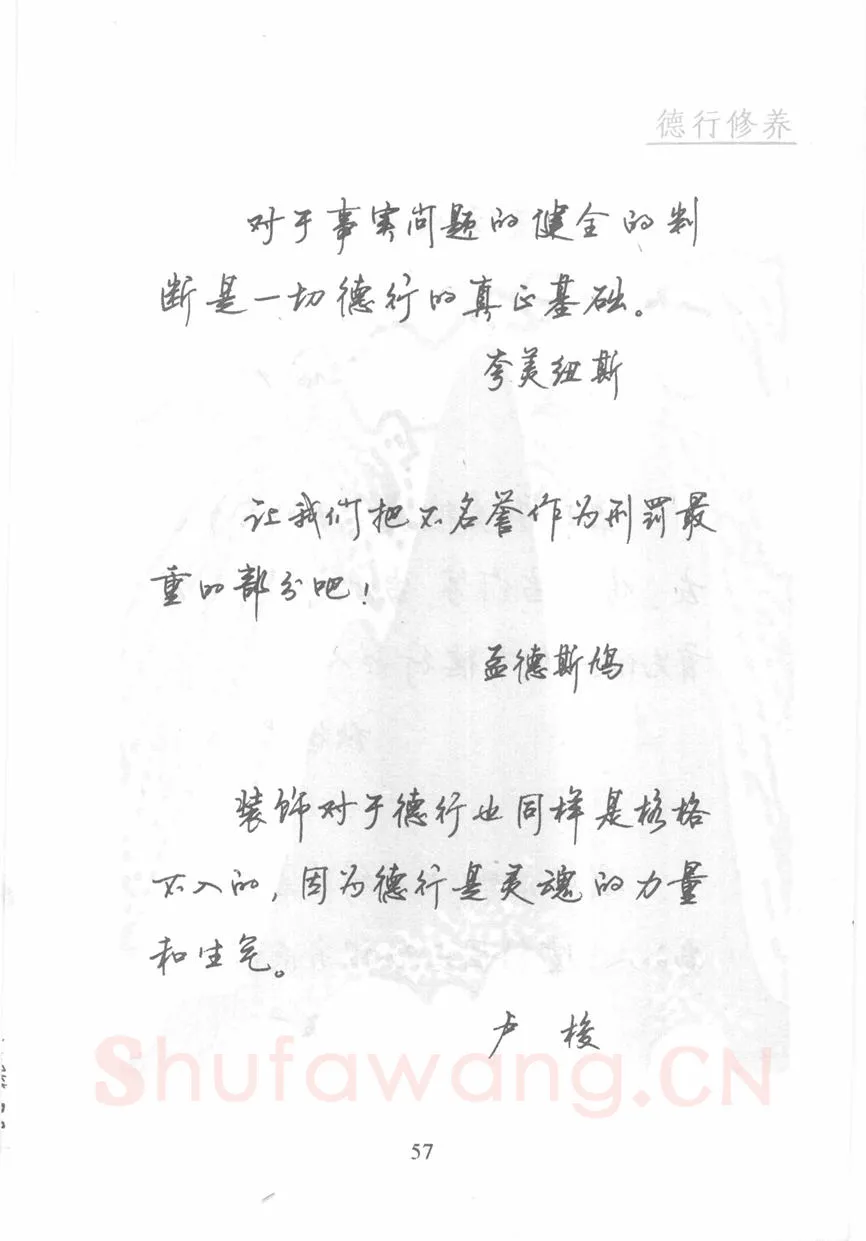 德行修养
对于事实问题的健全的判
断是一切德行的真正基础。
夸美纽斯
让我们把不名誉作为刑罚最
重的部分吧！
孟德斯鸠
装饰对于德行也同样是格格
不入的，因为德行是灵魂的力量
和生气。
卢梭
Shufawang.CN
57